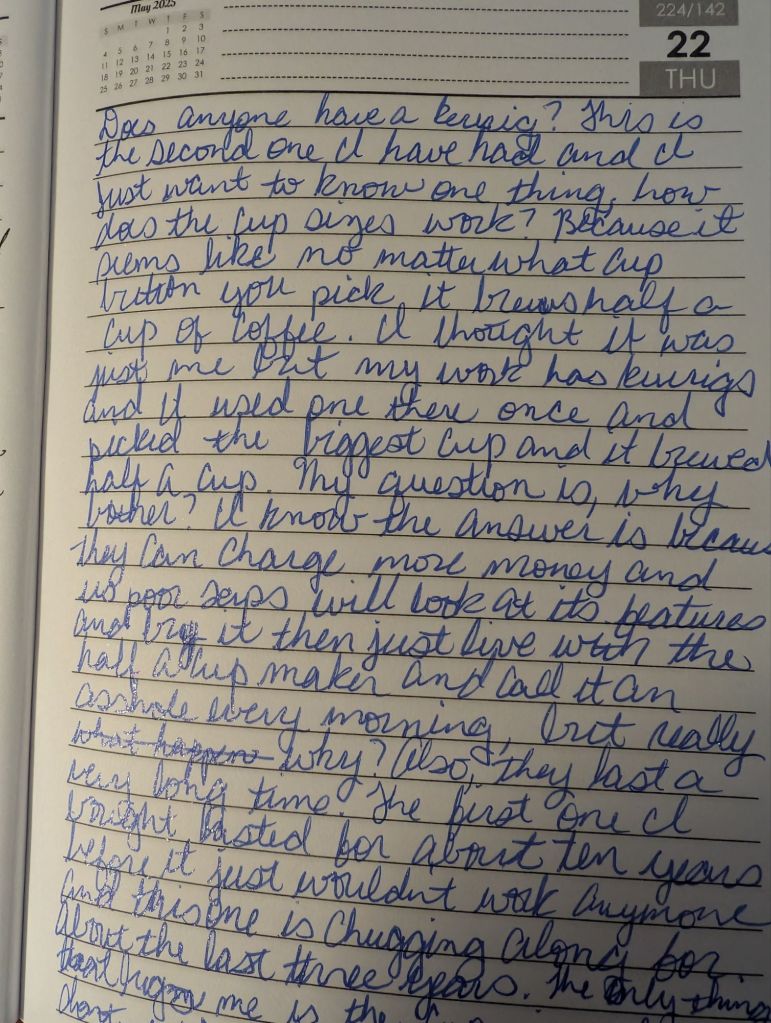 May 2025
S M T W T F S
1 2 3
4 5 6 7 8 9 10
11 12 13 14 15 16 17
18 19 20 21 22 23 24
25 26 27 28 29 30 31
224/142
22
THU
Does anyone have a keurig? This is
the second one I have had and I
just want to know one thing, how
does the cup sizes work? Because it
seems like no matter what cup
button you pick, it brews half a
cup of coffee. I thought it was
just me but my work has keurigs
and I used one there once and
picked the biggest cup and it brewed
half a cup. My question is, why
bother? I know the answer is becaus
they can charge more money and
us poor saps will look at its features
and buy it then just live with the
half a cup maker and call it an
asshole every morning, but really
what happens why? Also, they last a
very long time. The first one I
bought lasted for about ten years
before it just wouldnt work anymore
and this one is chugging along for
about the last three years. The only thing
that bugs me is the